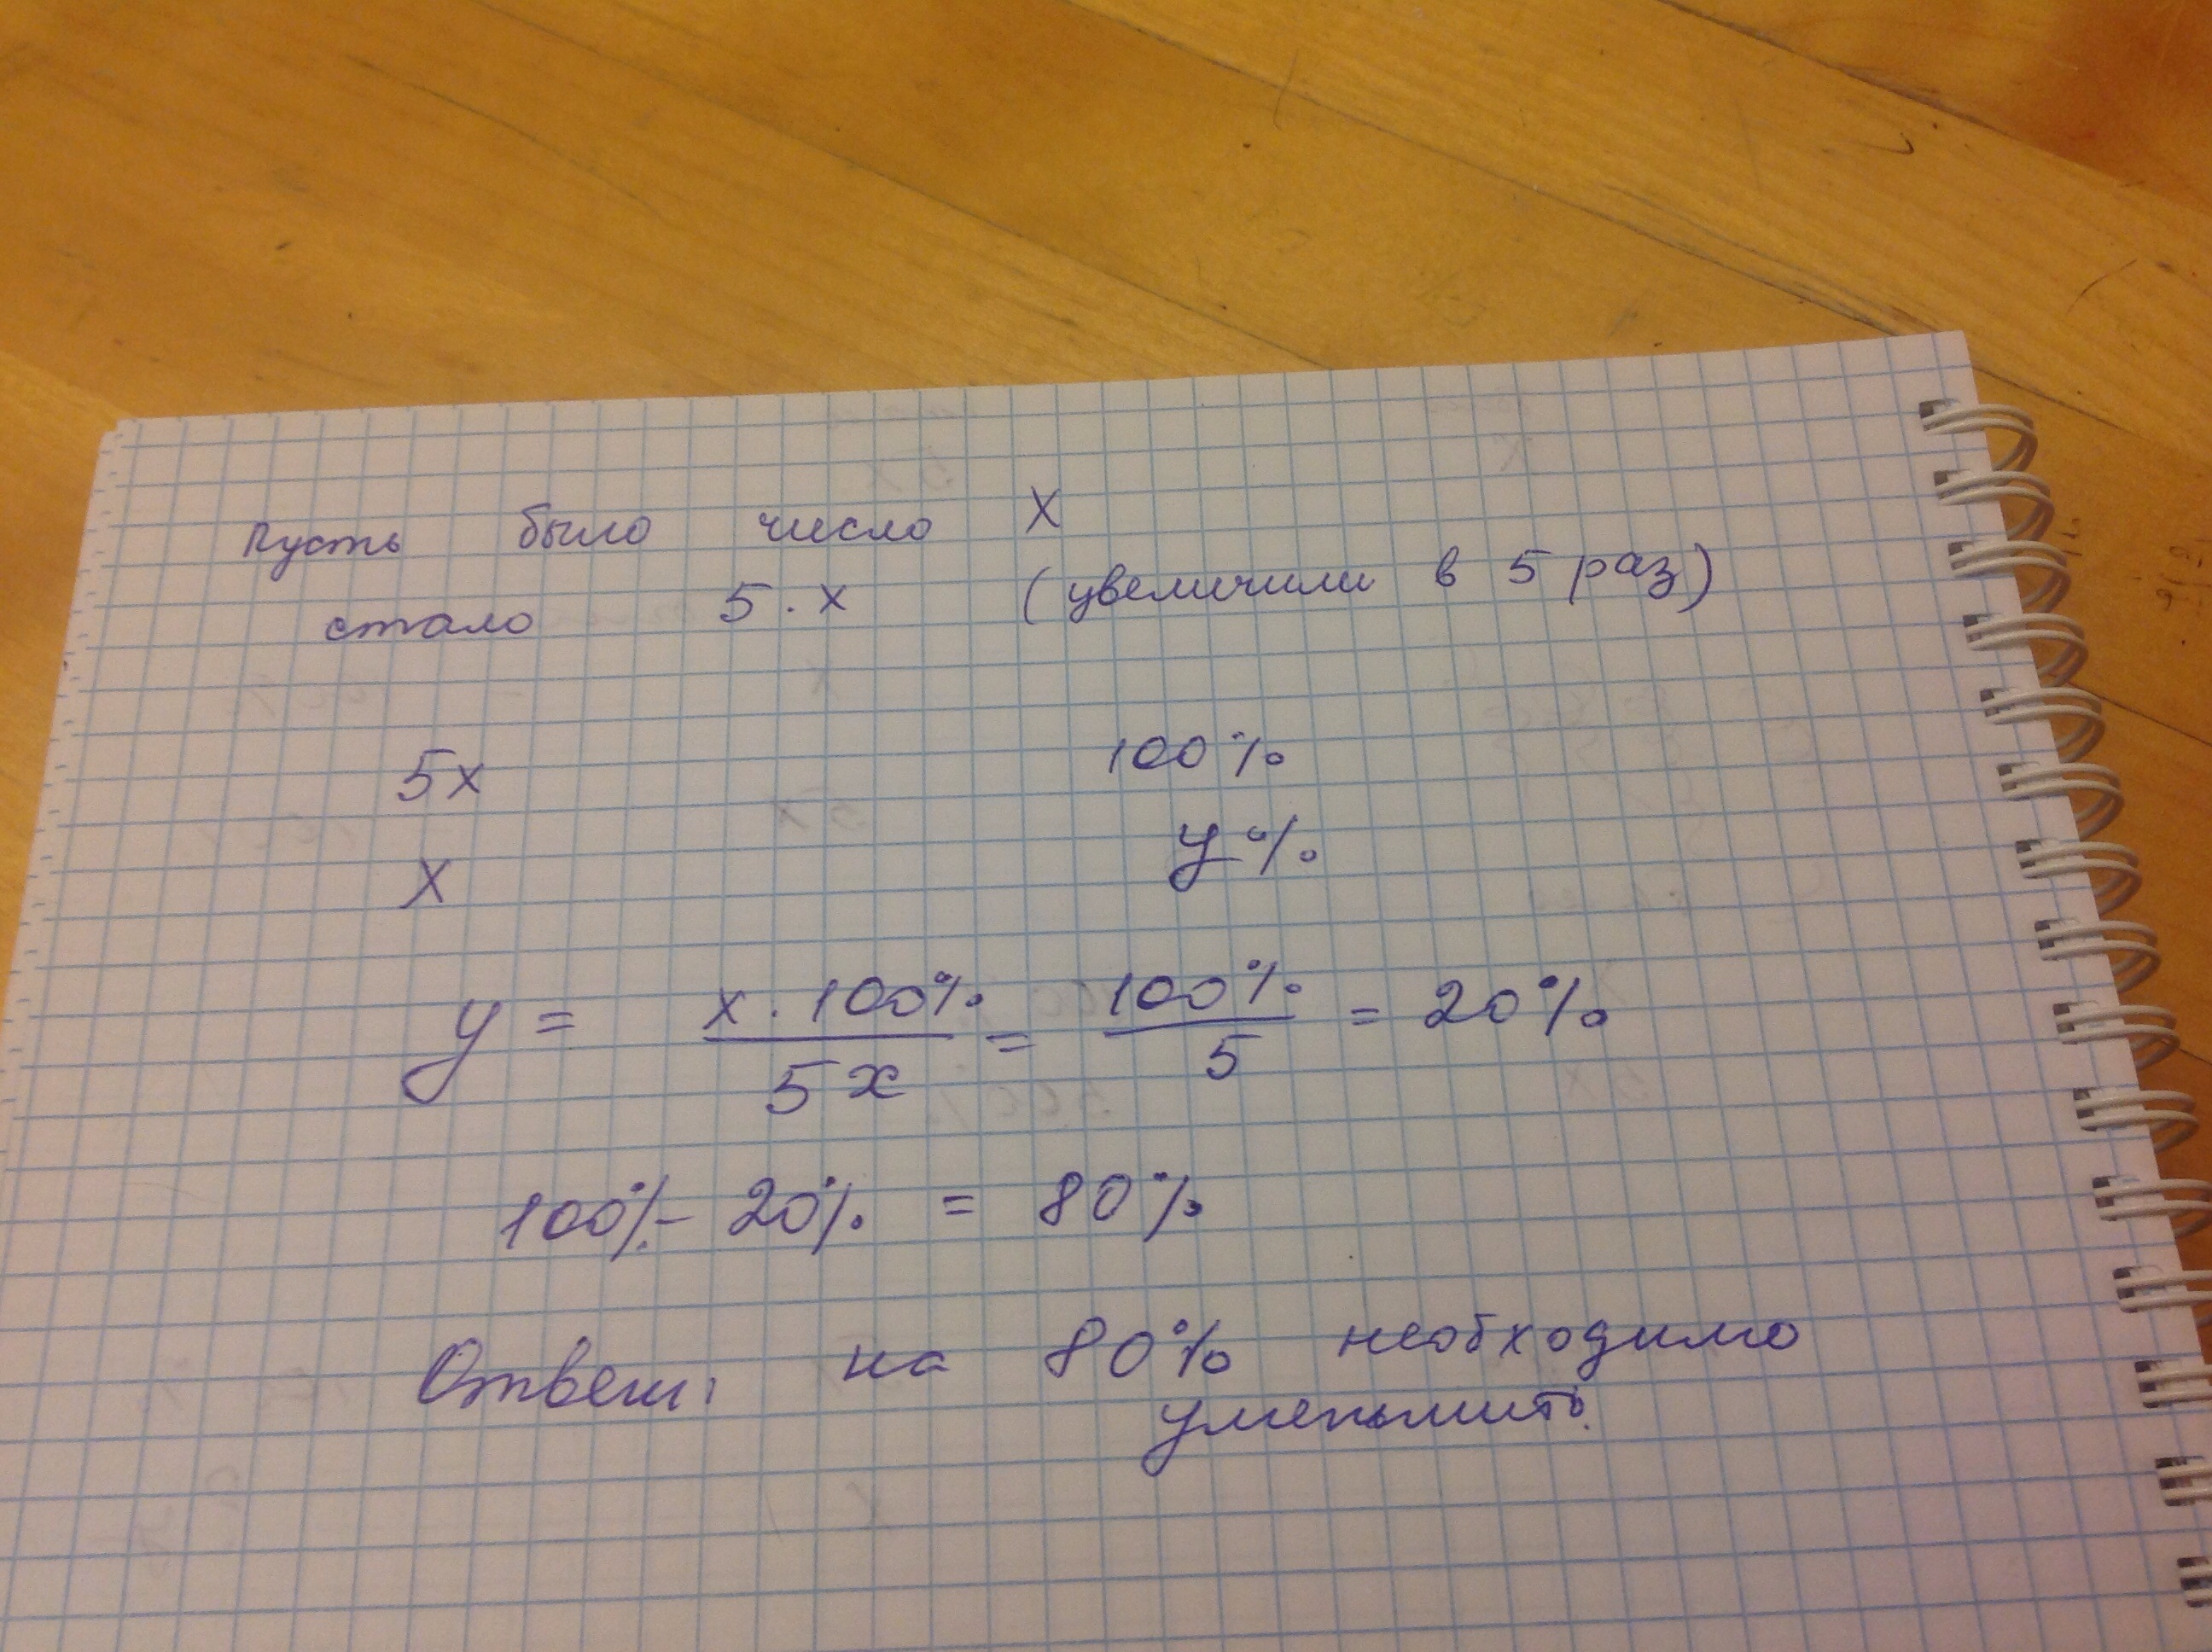 пусть было число x
стало 5·x (увеличили в 5 раз)
5x 100%
x y%
y = x·100% / 5x = 100% / 5 = 20%
100% - 20% = 80%
Ответ: на 80% необходимо
уменьшить.